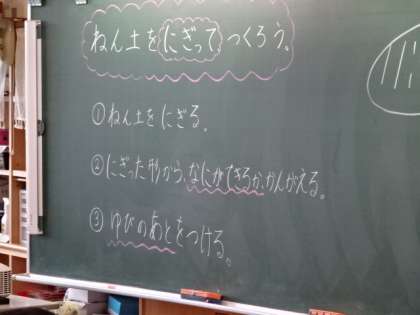 ねん土をにぎってつくろう。
①ねん土をにぎる。
②にぎった形から、なにができるか、かんがえる。
③ゆびのあとをつける。